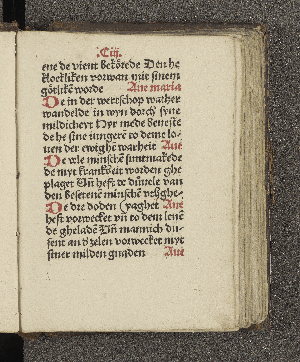 .Ciij.
ene de vient bekörede Den he
kloekliken vorwan mit sinem
götlikē worde Aue maria
De in der wertschop wather
wandelde in wyn dorch syne
mildicheyt Hyr mede beueste
de he sine iungerē to deme lo-
uen der ewighē warheit Aue
De vele minschē sunt makede
de myt krankheit worden ghe
plaget Uñ heft de düuele van
den besetenē minschē veryaghe-
De dre doden Aue
heft vorwecket vñ to dem leuē
de gheladē Uñ mannich du-
sent an zelen vorwecket myt
siner milden gnaden Aue